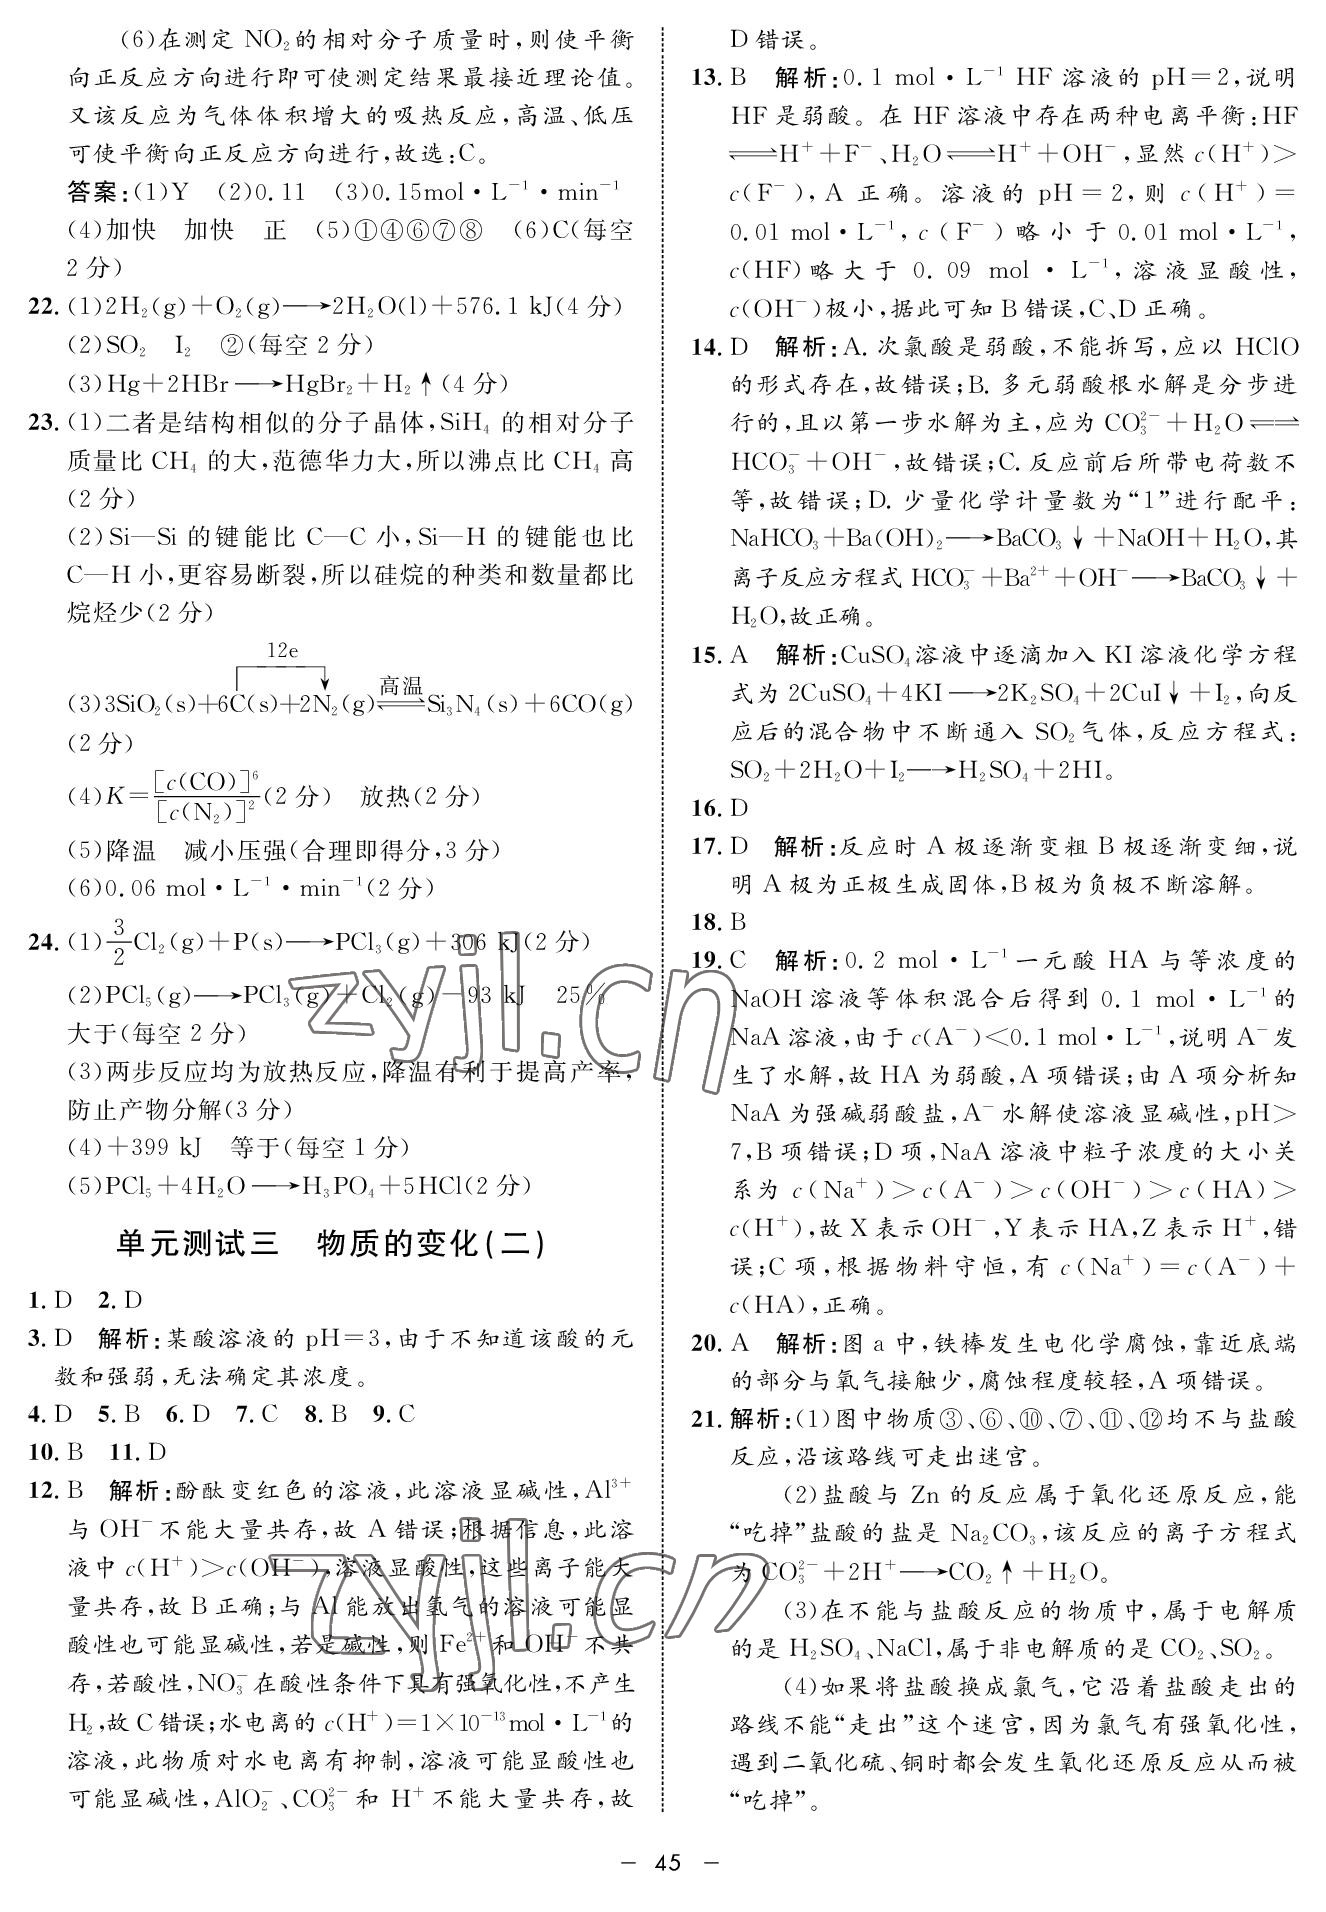 (6)在测定 NO₂的相对分子质量时,则使平衡
向正反应方向进行即可使测定结果最接近理论值。
又该反应为气体体积增大的吸热反应,高温、低压
可使平衡向正反应方向进行,故选:C。
答案:(1)Y (2)0.11 (3)0.15mol·L⁻¹·min⁻¹
(4)加快 加快 正 (5)①④⑥⑦⑧ (6)C(每空
2 分)
22. (1)2H₂(g)+O₂(g)⟶2H₂O(l)+576.1 kJ(4 分)
(2)SO₂ I₂ ②(每空 2 分)
(3)Hg+2HBr⟶HgBr₂+H₂↑(4 分)
23. (1)二者是结构相似的分子晶体,SiH₄ 的相对分子
质量比 CH₄ 的大,范德华力大,所以沸点比 CH₄ 高
(2 分)
(2)Si—Si 的键能比 C—C 小,Si—H 的键能也比
C—H 小,更容易断裂,所以硅烷的种类和数量都比
烷烃少(2 分)
12e
(3)3SiO₂(s)+6C(s)+2N₂(g)⇌高温 Si₃N₄(s)+6CO(g)
(2 分)
(4)K=[c(CO)]⁶/[c(N₂)]²(2 分) 放热(2 分)
(5)降温 减小压强(合理即得分,3 分)
(6)0.06 mol·L⁻¹·min⁻¹(2 分)
24. (1)3/2Cl₂(g)+P(s)⟶PCl₃(g)+306 kJ(2 分)
(2)PCl₅(g)⟶PCl₃(g)+Cl₂(g)−93 kJ 25%
大于(每空 2 分)
(3)两步反应均为放热反应,降温有利于提高产率,
防止产物分解(3 分)
(4)+399 kJ 等于(每空 1 分)
(5)PCl₅+4H₂O⟶H₃PO₄+5HCl(2 分)
单元测试三 物质的变化(二)
1. D 2. D
3. D 解析:某酸溶液的 pH=3,由于不知道该酸的元
数和强弱,无法确定其浓度。
4. D 5. B 6. D 7. C 8. B 9. C
10. B 11. D
12. B 解析:酚酞变红色的溶液,此溶液显碱性,Al³⁺
与 OH⁻不能大量共存,故 A 错误;根据信息,此溶
液中 c(H⁺)>c(OH⁻),溶液显酸性,这些离子能大
量共存,故 B 正确;与 Al 能放出氢气的溶液可能显
酸性也可能显碱性,若是碱性,则 Fe²⁺和 OH⁻不共
存,若酸性,NO₃⁻在酸性条件下具有强氧化性,不产生
H₂,故 C 错误;水电离的 c(H⁺)=1×10⁻¹³mol·L⁻¹的
溶液,此物质对水电离有抑制,溶液可能显酸性也
可能显碱性,AlO₂⁻、CO₃²⁻ 和 H⁺不能大量共存,故
D 错误。
13. B 解析:0.1 mol·L⁻¹ HF 溶液的 pH=2,说明
HF 是弱酸。在 HF 溶液中存在两种电离平衡:HF
⇌H⁺+F⁻、H₂O⇌H⁺+OH⁻,显然 c(H⁺)>
c(F⁻),A 正确。溶液的 pH=2,则 c(H⁺)=
0.01 mol·L⁻¹,c(F⁻)略小于 0.01 mol·L⁻¹,
c(HF)略大于 0.09 mol·L⁻¹,溶液显酸性,
c(OH⁻)极小,据此可知 B 错误,C、D 正确。
14. D 解析:A. 次氯酸是弱酸,不能拆写,应以 HClO
的形式存在,故错误;B. 多元弱酸根水解是分步进
行的,且以第一步水解为主,应为 CO₃²⁻+H₂O⇌
HCO₃⁻+OH⁻,故错误;C. 反应前后所带电荷数不
等,故错误;D. 少量化学计量数为“1”进行配平:
NaHCO₃+Ba(OH)₂⟶BaCO₃↓+NaOH+H₂O,其
离子反应方程式 HCO₃⁻+Ba²⁺+OH⁻⟶BaCO₃↓+
H₂O,故正确。
15. A 解析:CuSO₄溶液中逐滴加入 KI 溶液化学方程
式为 2CuSO₄+4KI⟶2K₂SO₄+2CuI↓+I₂,向反
应后的混合物中不断通入 SO₂气体,反应方程式:
SO₂+2H₂O+I₂⟶H₂SO₄+2HI。
16. D
17. D 解析:反应时 A 极逐渐变粗 B 极逐渐变细,说
明 A 极为正极生成固体,B 极为负极不断溶解。
18. B
19. C 解析:0.2 mol·L⁻¹一元酸 HA 与等浓度的
NaOH 溶液等体积混合后得到 0.1 mol·L⁻¹的
NaA 溶液,由于 c(A⁻)<0.1 mol·L⁻¹,说明 A⁻发
生了水解,故 HA 为弱酸,A 项错误;由 A 项分析知
NaA 为强碱弱酸盐,A⁻水解使溶液显碱性,pH>
7,B 项错误;D 项,NaA 溶液中粒子浓度的大小关
系为 c(Na⁺)>c(A⁻)>c(OH⁻)>c(HA)>
c(H⁺),故 X 表示 OH⁻,Y 表示 HA,Z 表示 H⁺,错
误;C 项,根据物料守恒,有 c(Na⁺)=c(A⁻)+
c(HA),正确。
20. A 解析:图 a 中,铁棒发生电化学腐蚀,靠近底端
的部分与氧气接触少,腐蚀程度较轻,A 项错误。
21. 解析:(1)图中物质③、⑥、⑩、⑦、⑪、⑫均不与盐酸
反应,沿该路线可走出迷宫。
(2)盐酸与 Zn 的反应属于氧化还原反应,能
“吃掉”盐酸的盐是 Na₂CO₃,该反应的离子方程式
为 CO₃²⁻+2H⁺⟶CO₂↑+H₂O。
(3)在不能与盐酸反应的物质中,属于电解质
的是 H₂SO₄、NaCl,属于非电解质的是 CO₂、SO₂。
(4)如果将盐酸换成氯气,它沿着盐酸走出的
路线不能“走出”这个迷宫,因为氯气有强氧化性,
遇到二氧化硫、铜时都会发生氧化还原反应从而被
“吃掉”。
zyjl.cn
zyjl.cn
— 45 —